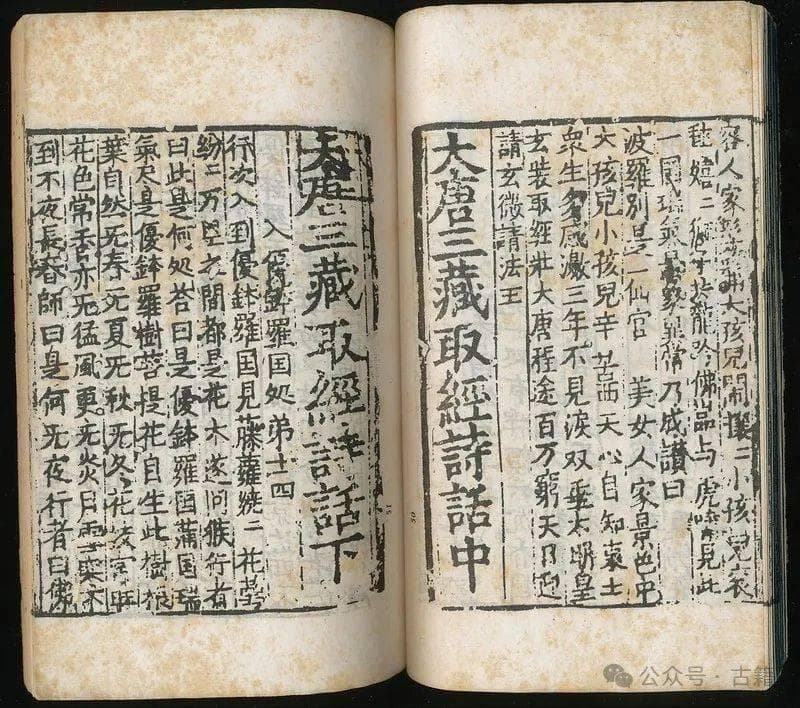 容人家
大孩兒鬧攘二小孩兒哀
龍吟佛品与虎嘯見此
一國瑞氣
常乃成讃曰
波羅別是一仙宫 美女人家景色中
大孩兒小孩兒辛苦西天心自知哀士
衆生多感激三年不見淚双垂太明皇
玄裝取經壯大唐程途百万窮天日迎
請玄微請法王
大唐三藏取經詩話中
大唐三藏取經詩話下
入優鉢羅国処苐十四
行次入到優鉢羅国見藤蘿繞二花
紛二万里之間都是花木遂问猴行者
曰此是何処荅曰是優鉢羅国滿国瑞
氣尽是優鉢羅樹菩提花自生此樹根
葉自然无春无夏无秋无冬花
花色常香亦无猛風更无炎日雪寒不
到不夜長春師曰是何无夜行者曰佛
50
51
公众号·古籍